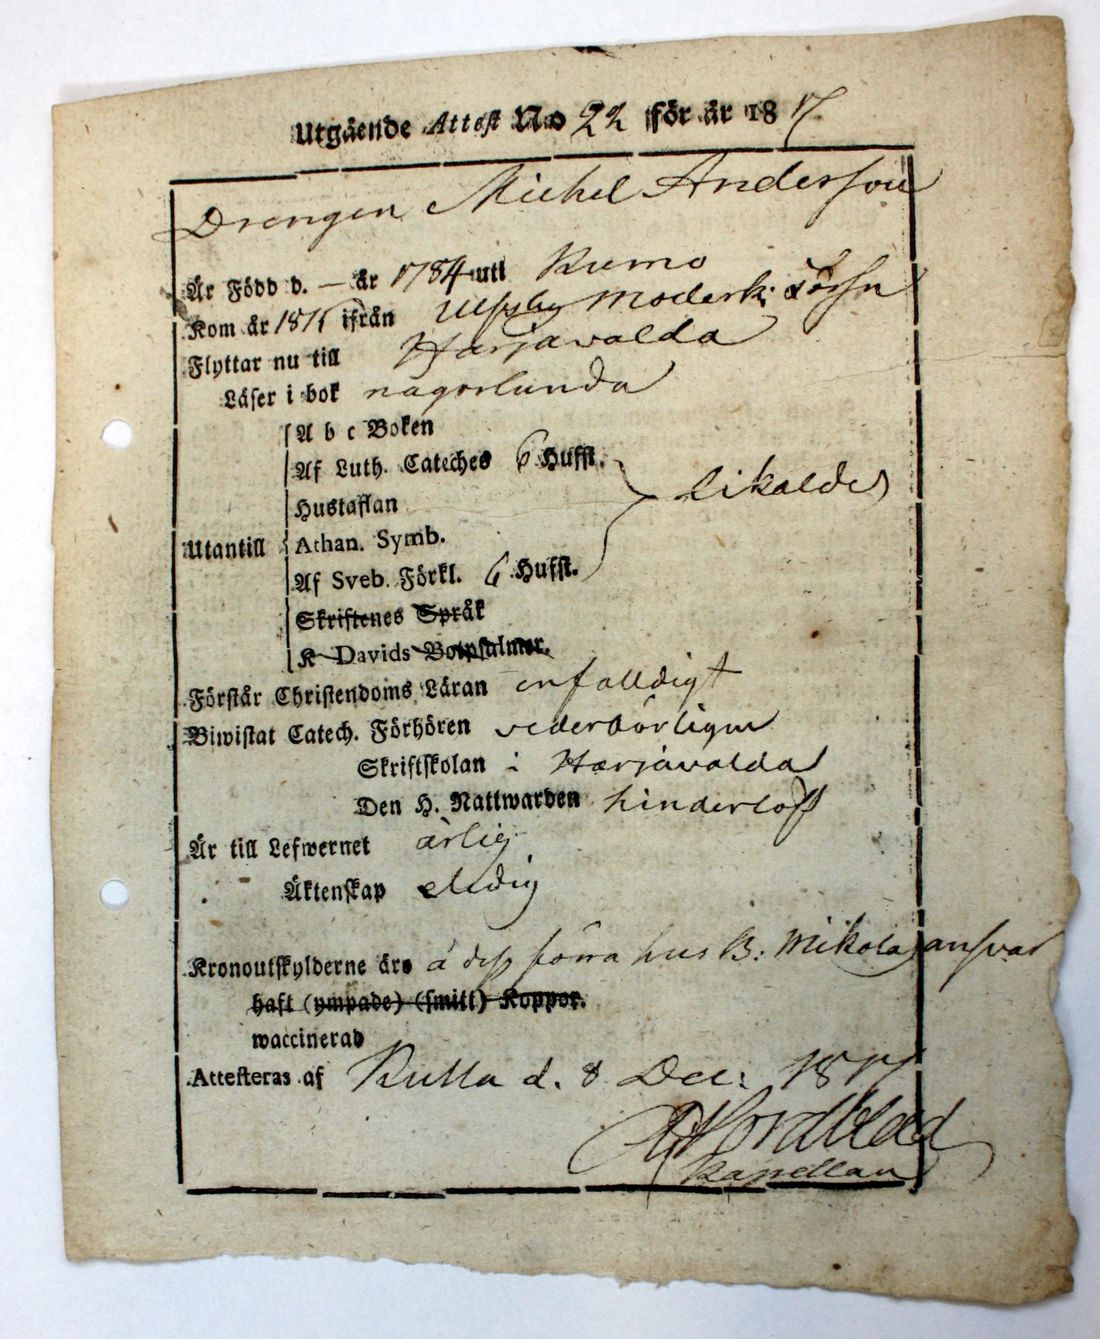 Utgående Attest No 22 för år 1817
Drengen Michel Andersson
Är Född d. — år 1784 uti Kumo
Kom år 1816 ifrån Ulfsby Moderk: Församl
Flyttar nu till Harjavalda
Läser i bok någorlunda
A b c Boken
Af Luth. Cateches 6 Hufst.
Hustaflan
likaledes
Utantill Athan. Symb.
Af Sveb. Förkl. 6 Hufst.
Skriftenes Språk
K Davids Botpsalmer.
Förstår Christendoms Läran enfalldigt
Biwistat Catech. Förhören vederbörligen
Skriftskolan i Harjavalda
Den H. Nattwarden hinderlöst
Är till Lefwernet ärlig
Äktenskap ledig
Kronoutskylderne äro å dess förra hus B: Mikola ansvar
haft (ympade) (smitt) Koppor.
waccinerad
Attesteras af Kulla d. 8 Dec: 1817
Nordblad
Kapellan